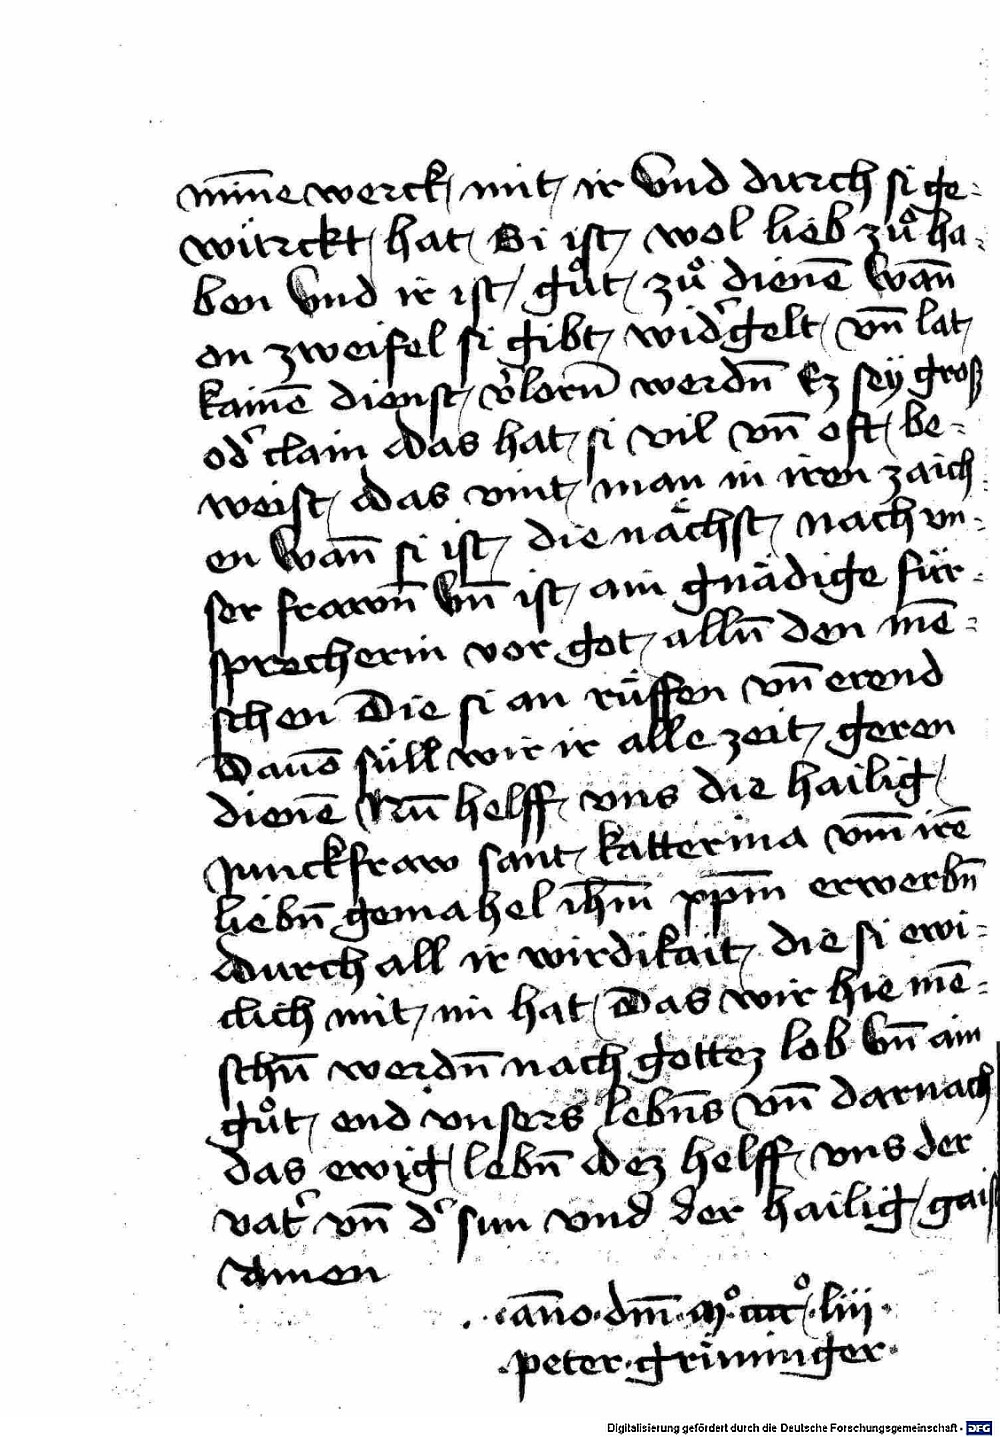 mīne werck mit ir Vnd durch si ge-
würckt hat Si ist wol lieb zů ha-
ben Vnd ir ist gůt zů dienē Wan̄
on zweifel si gibt wid͛gelt vn̄ lat
kainē dienst v͛lorn̄ werdn̄ Ez sey groß
od͛ clain Das hat si vil vn̄ oft be-
weist Das vint man in iren zaich-
en Wan̄ si ist die nächst nach vn-
ser frawn̄ Vn̄ ist ain gnädige für-
sprecherin vor got alln̄ den mē-
schen Die si an rüffen vn̄ erend
Dauō süll wir ir alle zeit geren
dienē Nū helff vns die hailig
junckfraw sant katterina vm̄ irē
liebn̄ gemahel ihm̄ xpm̄ erwerbn̄
Durch all ir wirdikait die si ewi-
clich mit im hat Das wir hie mē-
schn̄ werdn̄ nach gottez lob Vn̄ ain
gůt end vnsers lebn̄s vn̄ darnach
das ewig lebn̄ Dez helff vns der
vat͛ vn̄ d͛ sun vnd der hailig gaist
Amen
·an̄o·dm̄·Mº·ccccº·liii·
·peter·grüninger·
Digitalisierung gefördert durch die Deutsche Forschungsgemeinschaft - DFG